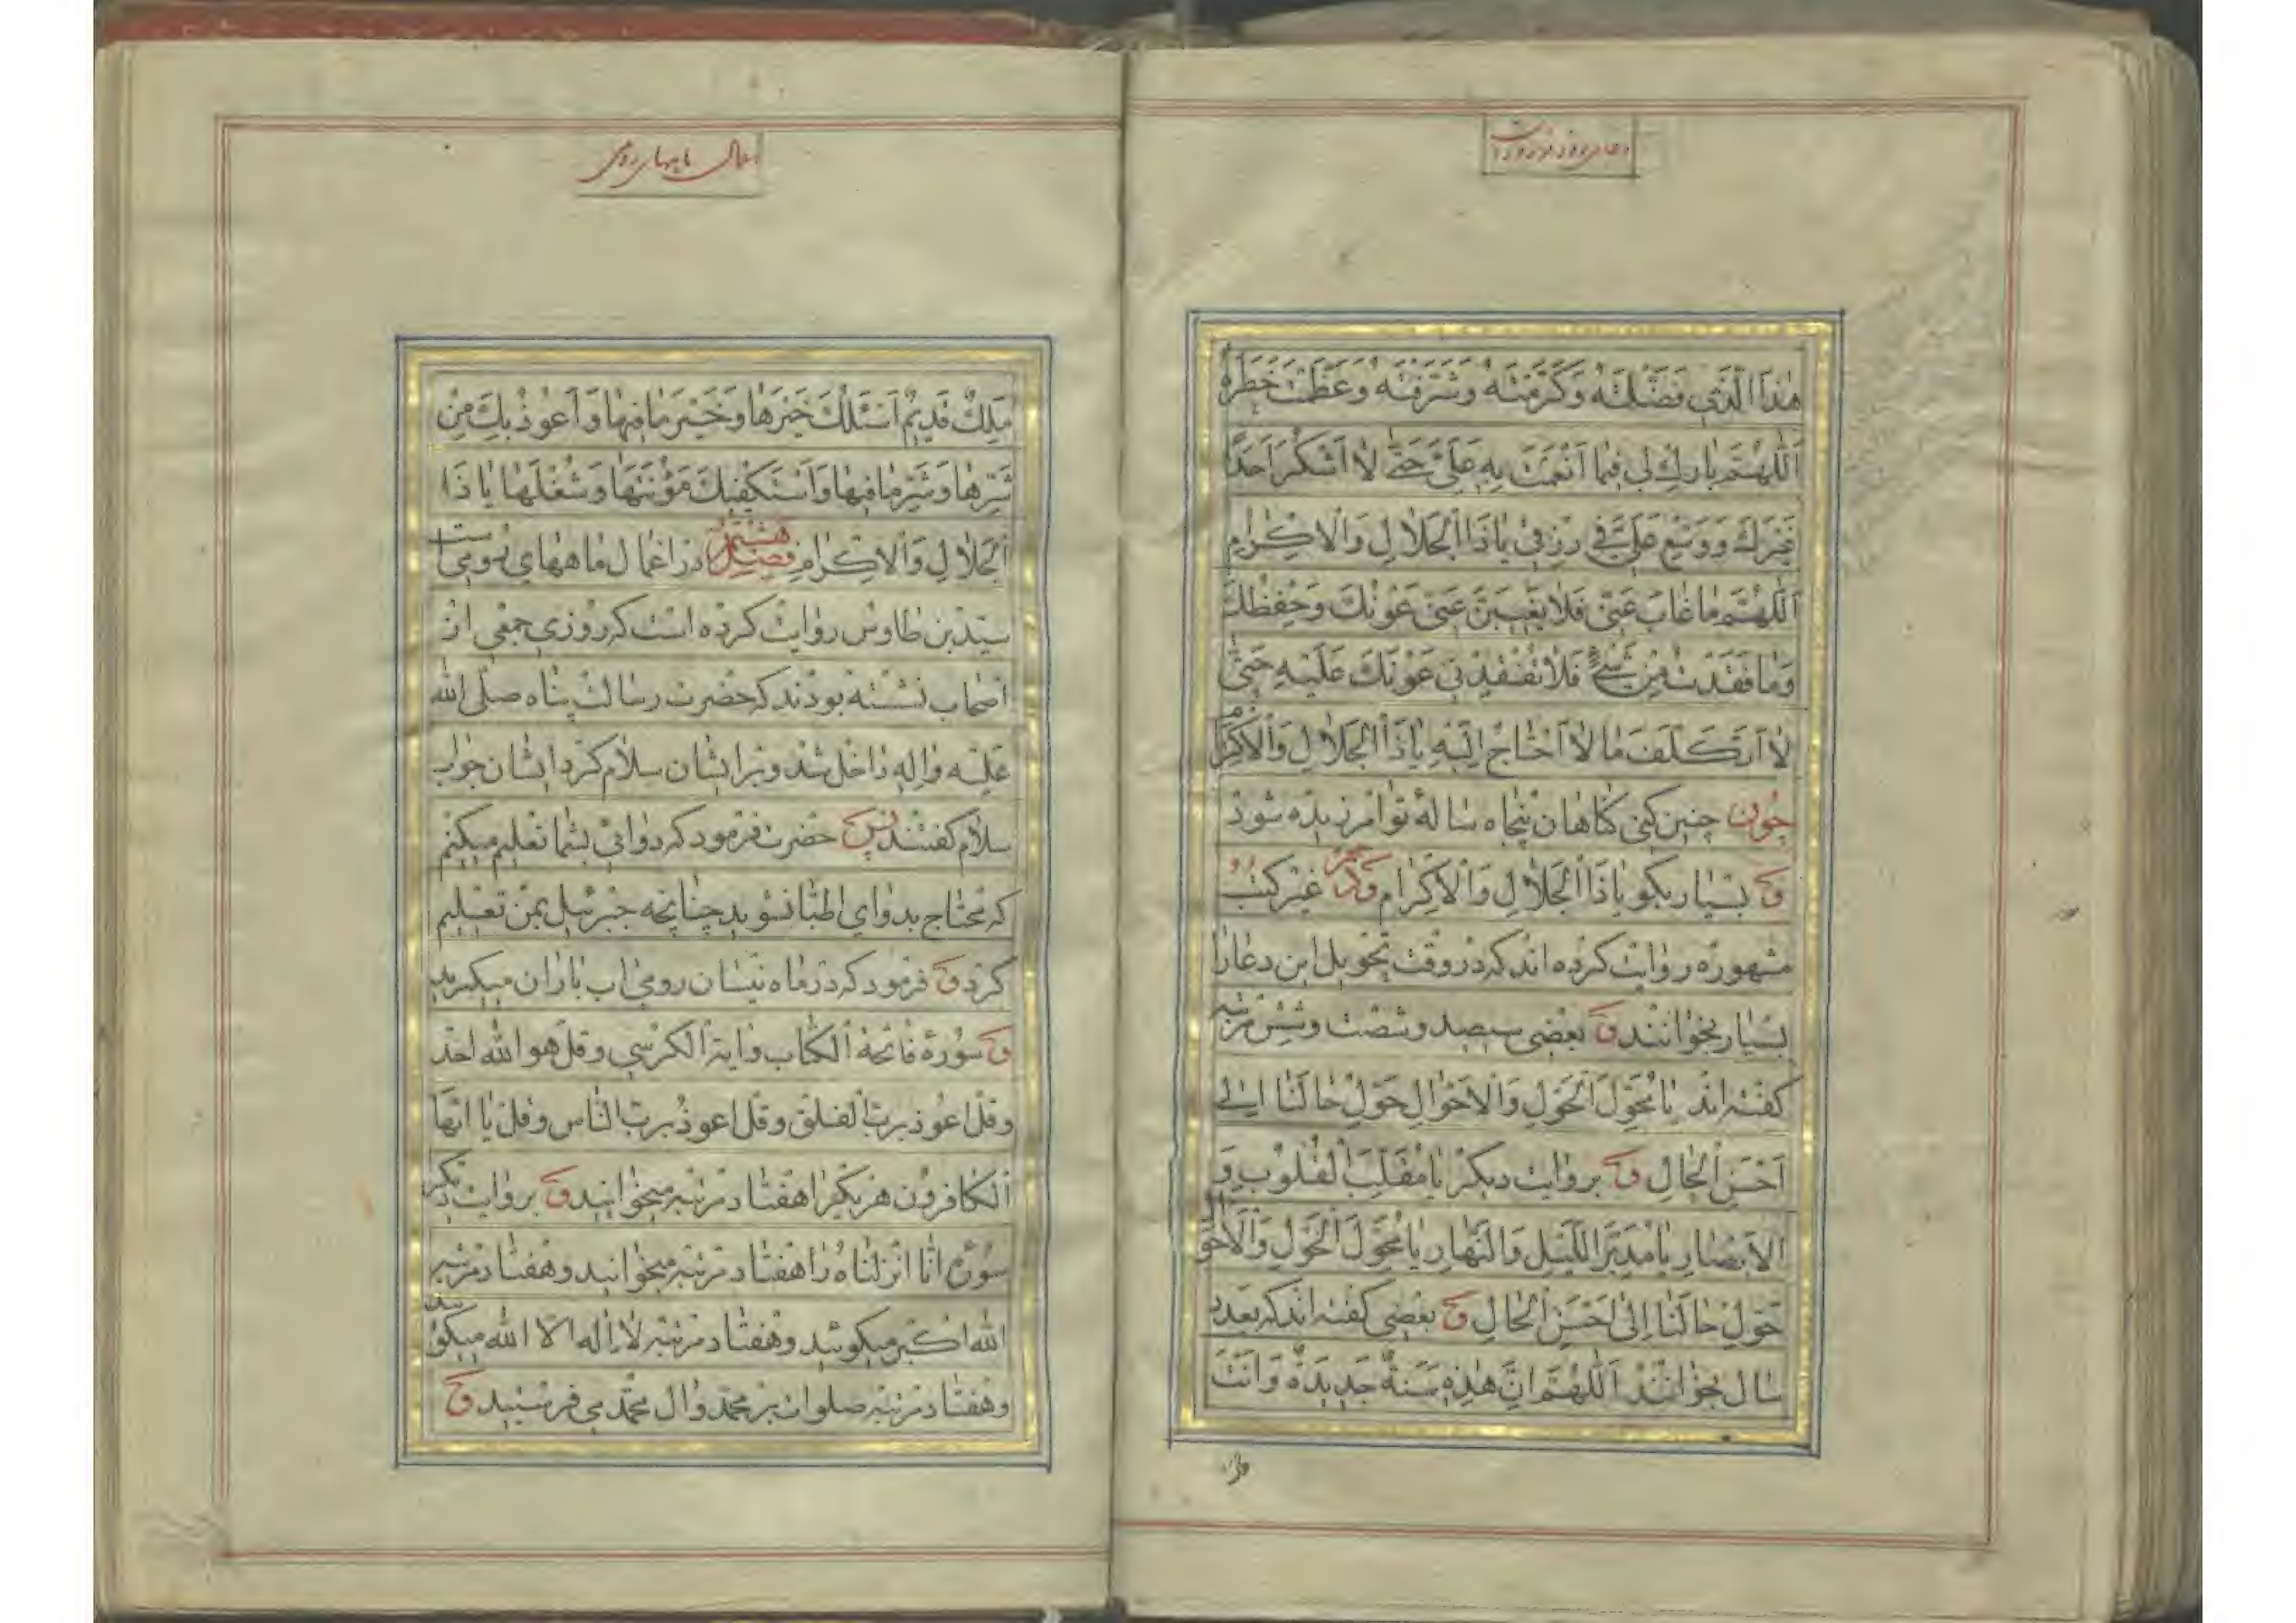 دعای روز نوروز است
هٰذَا الَّذي فَضَّلْتَهُ وَكَرَّمْتَهُ وَشَرَّفْتَهُ وَعَظَّمْتَ خَطَرَهُ
اَللّٰهُمَّ بارِكْ لي فيما اَنْعَمْتَ بِهِ عَلَيَّ حَتّٰى لا اَشْكُرَ اَحَدًا
غَيْرَكَ وَوَسِّعْ عَلَيَّ في رِزْقي يا ذَا الْجَلالِ وَالْاِكْرامِ
اَللّٰهُمَّ ما غابَ عَنّي فَلا يَغيبَنَّ عَنّي عَوْنُكَ وَحِفْظُكَ
وَما فَقَدْتُ مِنْ شَيْءٍ فَلا تُفْقِدْني عَوْنَكَ عَلَيْهِ حَتّٰى
لا اَتَكَلَّفَ ما لا اَحْتاجُ اِلَيْهِ يا ذَا الْجَلالِ وَالْاِكْرامِ
چون چنين كنى كناهان پنجاه ساله تو امرزيده شود
و بسيار بكو يا ذَا الْجَلالِ وَالْاِكْرامِ و در غير كتب
مشهوره روايت كرده اند كه در وقت تحويل اين دعا را
بسيار بخوانند و بعضى سيصد و شصت و شش مرتبه
كفته اند يا مُحَوِّلَ الْحَوْلِ وَالْاَحْوالِ حَوِّلْ حالَنا اِلى
اَحْسَنِ الْحالِ و بروايت ديكر يا مُقَلِّبَ الْقُلُوبِ وَ
الْاَبْصارِ يا مُدَبِّرَ اللَّيْلِ وَالنَّهارِ يا مُحَوِّلَ الْحَوْلِ وَالْاَحْوالِ
حَوِّلْ حالَنا اِلىٰ اَحْسَنِ الْحالِ و بعضى كفته اند كه بعدد
سال بخوانند اَللّٰهُمَّ اِنَّ هٰذِهِ سَنَةٌ جَديدَةٌ وَاَنْتَ
اعمال ماههای رومی
مَلِكٌ قَديمٌ اَسْئَلُكَ خَيْرَها وَخَيْرَ ما فيها وَاَعُوذُ بِكَ مِنْ
شَرِّها وَشَرِّ ما فيها وَاَسْتَكْفيكَ مَؤُنَتَها وَشُغْلَها يا ذَا
الْجَلالِ وَالْاِكْرامِ فصل هشتم در اعمال ماههاي رومي است
سيد بن طاوس روايت كرده است كه روزي جمعي از
اصحاب نشسته بودند كه حضرت رسالت پناه صلى الله
عليه واله داخل شد و بر ايشان سلام كرد ايشان جواب
سلام كفتند پس حضرت فرمود كه دوائي بشما تعليم ميكنم
كه محتاج بدواي اطبا نشويد چنانچه جبرئيل بمن تعليم
كرد و فرمود كه در ماه نيسان رومي اب باران ميكيريد
و سوره فاتحة الكتاب واية الكرسي وقل هو الله احد
وقل اعوذ برب الفلق وقل اعوذ برب الناس وقل يا ايها
الكافرون هر يكيرا هفتاد مرتبه ميخوانيد و بروايت ديكر
سوره انا انزلناه را هفتاد مرتبه ميخوانيد و هفتاد مرتبه
الله اكبر ميكوئيد و هفتاد مرتبه لا اله الا الله ميكوئيد
و هفتاد مرتبه صلوات بر محمد وال محمد مي فرستيد و